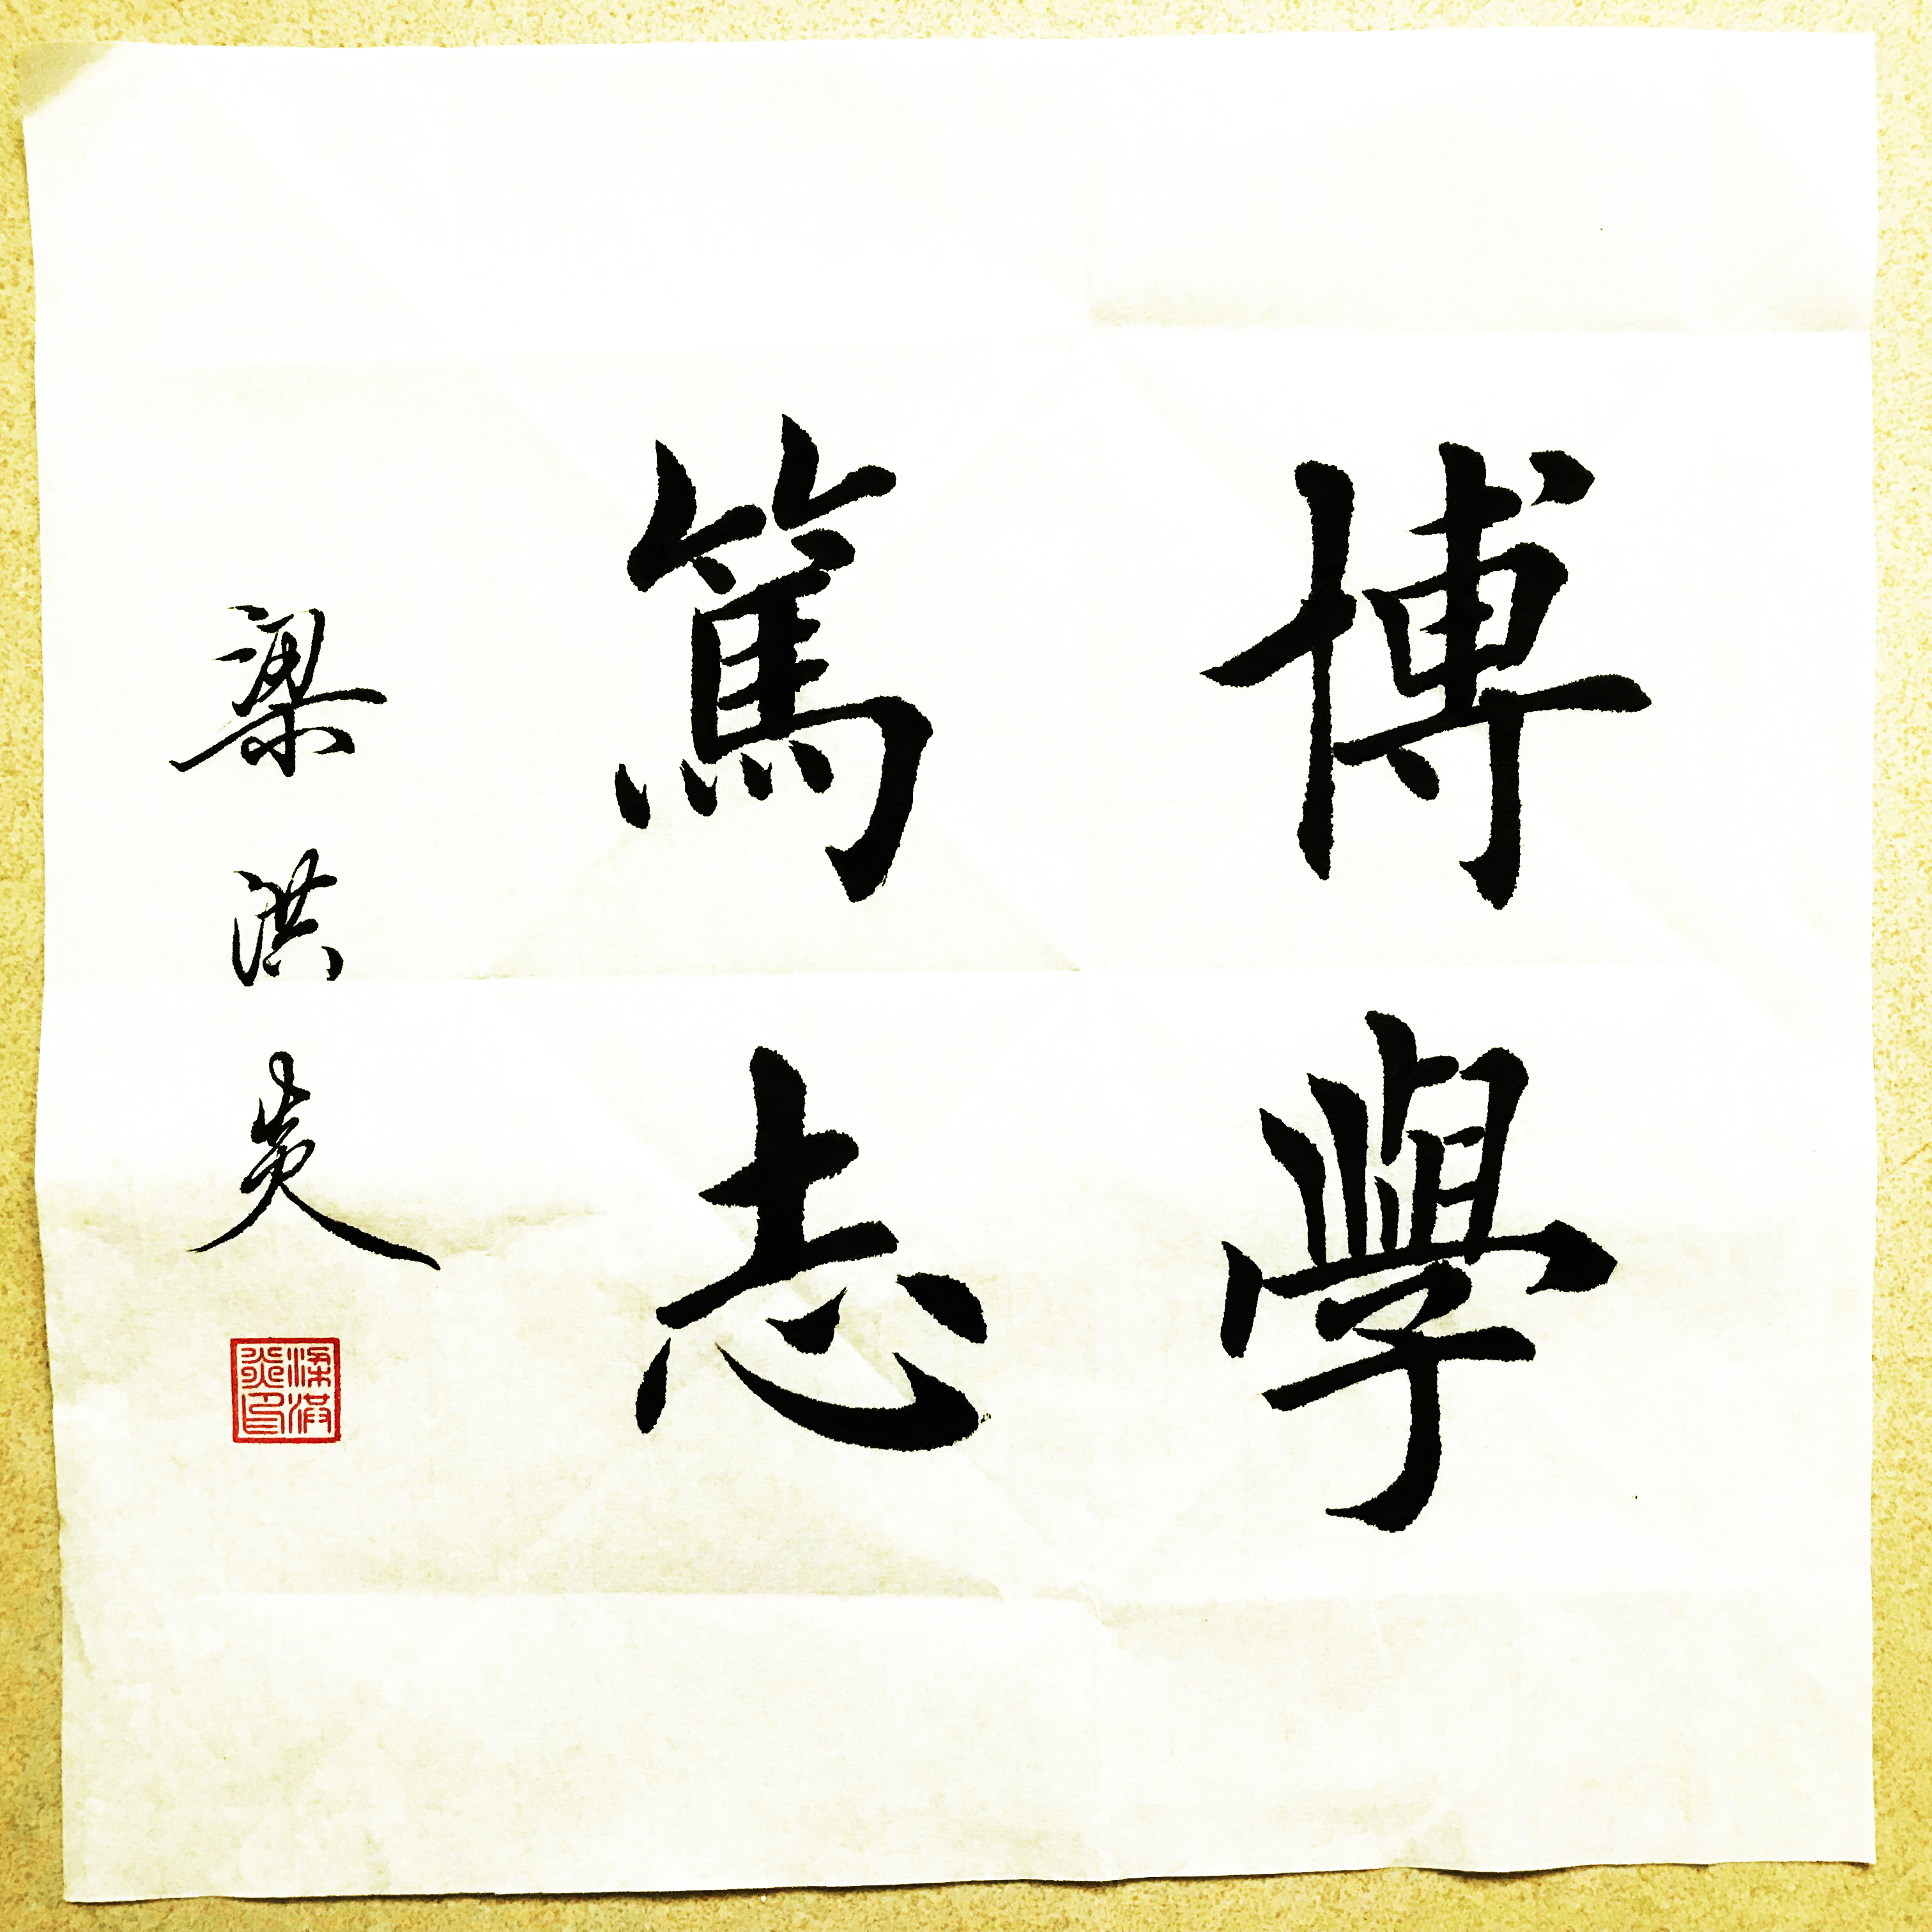 博學
篤志
梁洪炎
梁洪炎印